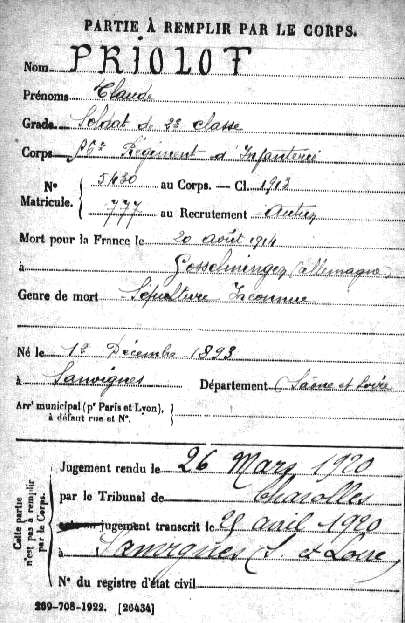 PARTIE À REMPLIR PAR LE CORPS.
Nom PRIOLOT
Prénoms Claude
Grade Soldat de 2e classe
Corps Régiment d'Infanterie
N° Matricule. 5430 au Corps. — Cl. 1912
777 au Recrutement Autun
Mort pour la France le 20 août 1914
à Gosselminger (Allemagne)
Genre de mort Sépulture Inconnue
Né le Décembre 1893
à Sanvignes Département Saône et Loire
Arr' municipal (pr Paris et Lyon),
à défaut rue et N°.
Cette partie
n'est pas à remplir
par le Corps.
Jugement rendu le 26 Mars 1920
par le Tribunal de Charolles
jugement transcrit le avril 1920
à Sanvignes (S. et Loire)
N° du registre d'état civil
269-708-1922. [26434]